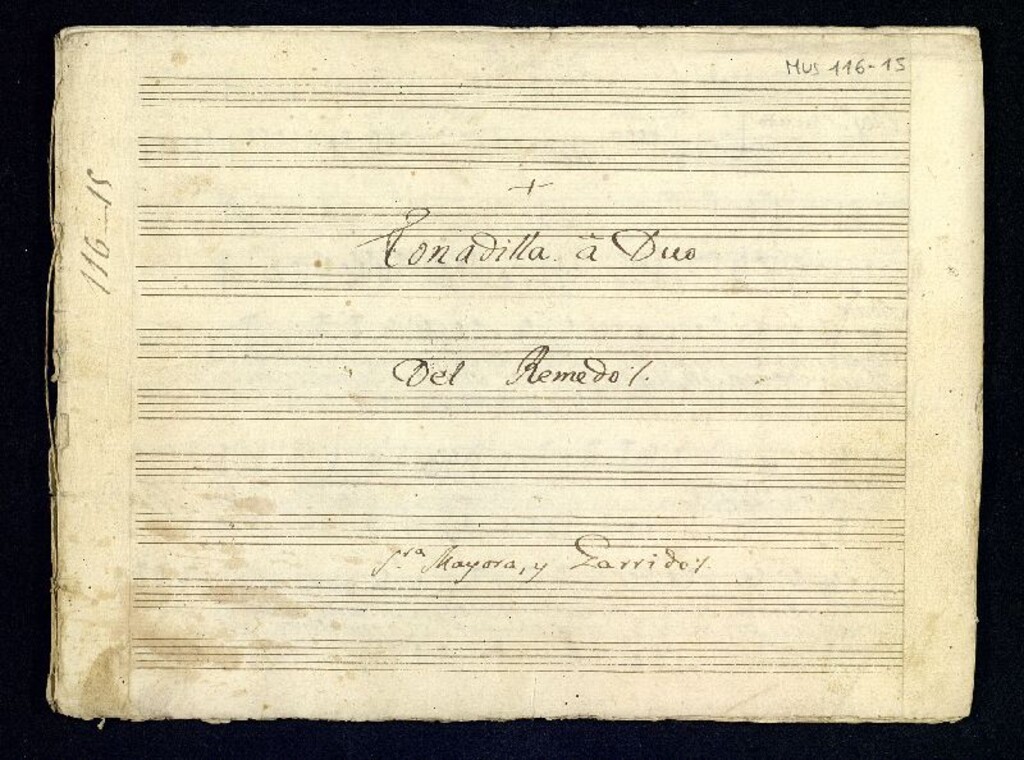 MUS 116-15
116-15
+
Tonadilla. â Duo
Del Remedo /.
S.ra Mayora, y Garrido /.